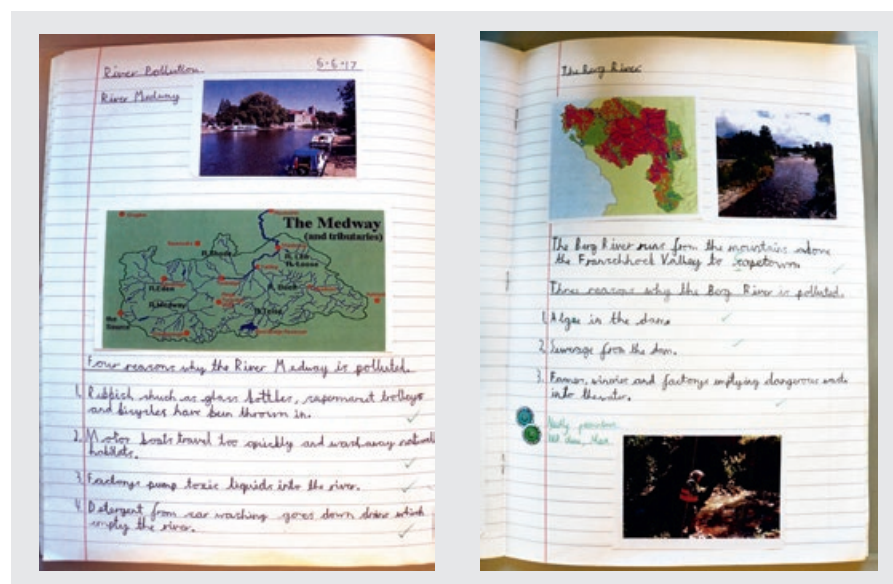 River Pollution
6.6.17
River Medway
The Medway
(and tributaries)
R. Eden
R. Medway
R. Teise
the Source
Four reasons why the River Medway is polluted.
1. Rubbish shuch as glass bottles, supermarket trolleys
and bicycles have been thrown in.
2. Motor boats travel too quickly and wash away natural
habitats.
3. Factorys pump toxic liquids into the river.
4. Detergent from car washing goes down drains which
empty the river.
The Berg River
The Berg River runs from the mountains above
the Franschhoek Valley to capetown.
Three reasons why the Berg River is polluted.
1. Algae in the dam.
2. Sewerage from the dam.
3. Farmer, wineries and factorys emptying dangerous waste
into the water.